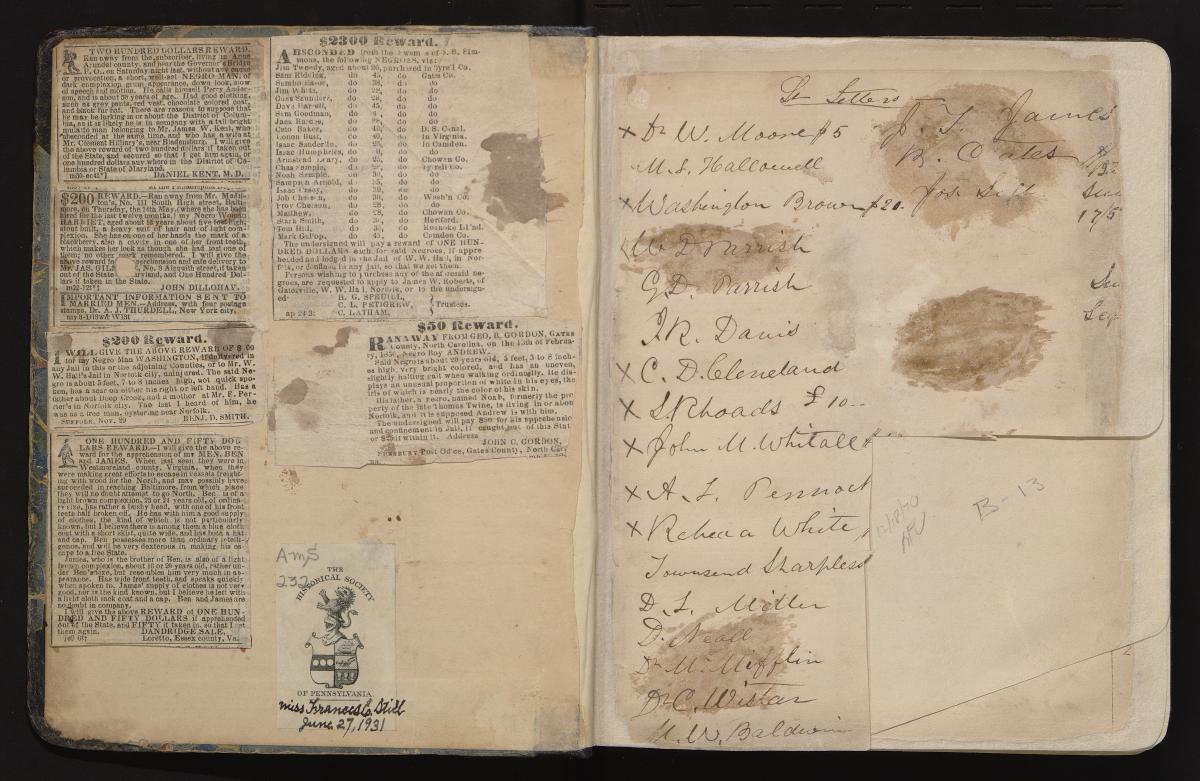 TWO HUNDRED DOLLARS REWARD.
Ran away from the subscriber, living in Anne
Arundel county, and near the Governor's Bridge
P. O., on Saturday night last, without any cause
or provocation, a short, well-set NEGRO MAN, of
dark complexion, grum appearance, down look, slow
of speech and motion. He calls himself Perry Ander-
son, and is about 38 years of age. Had good clothing,
such as grey pants, red vest, chocolate colored coat,
and black fur hat. There are reasons to suppose that
he may be lurking in or about the District of Colum-
bia, as it is likely he is in company with a tall bright
mulatto man belonging to Mr. James W. Kent, who
absconded at the same time, and who has a wife at
Mr. Clement Hilliary's, near Bladensburg. I will give
the above reward of two hundred dollars if taken out
of the State, and secured so that I get him again, or
one hundred dollars any where in the District of Co-
lumbia or State of Maryland.
DANIEL KENT, M. D.
$200 REWARD.—Ran away from Mr.
No. 111 South High street, Balti-
more, on Thursday, the 14th May, (where she has been
hired for the last twelve months,) my Negro Woman
HARRIET, aged about 16 years, about five feet high,
stout built, a heavy suit of hair and of light com-
plexion. She has on one of her hands the mark of a
blackberry, also a cavity in one of her front teeth,
which makes her look as though she had lost one of
them; no other mark remembered. I will give the
above reward for apprehension and safe delivery to
Mr. JAS. No. 8 Aisquith street, if taken
out of the State Maryland, and One Hundred Dol-
lars if taken in the State.
JOHN DILLOHAY.
IMPORTANT INFORMATION SENT TO
MARRIED MEN.—Address, with four postage
stamps, Dr. A. J. THURDELL, New York city.
$200 Reward.
I WILL GIVE THE ABOVE REWARD OF
for my Negro Man WASHINGTON, if delivered in
any Jail in this or the adjoining Counties, or to Mr. W.
W. Hall's Jail in Norfolk city, uninjured. The said Ne-
gro is about 5 feet, 7 to 8 inches high, not quick spo-
ken, has a scar on either his right or left hand. Has a
father about Deep Creek, and a mother at Mr. F. Por-
ter's in Norfolk city. The last I heard of him, he
was as a free man, oystering near Norfolk.
SUFFOLK, NOV. 29 BENJ. D. SMITH.
ONE HUNDRED AND FIFTY DOL
LARS REWARD.—I will give the above re-
ward for the apprehension of my MEN, BEN
and JAMES. When last seen they were in
Westmoreland county, Virginia, when they
were making great efforts to escape in vessels freight-
ing with wood for the North, and may possibly have
succeeded in reaching Baltimore, from which place
they will no doubt attempt to go North. Ben is of a
light brown complexion, 23 or 24 years old, of ordina-
ry size, has rather a bushy head, with one of his front
teeth half broken off. He has with him a good supply
of clothes, the kind of which is not particularly
known, but I believe there is among them a blue cloth
coat with a short skirt, quite wide, and has both a hat
and cap. Ben possesses more than ordinary intelli-
gence, and will be very dexterous in making his es-
cape to a free State.
James, who is the brother of Ben, is also of a light
brown complexion, about 18 or 20 years old, rather un-
der Ben's size, but resembles him very much in ap-
pearance. Has wide front teeth, and speaks quickly
when spoken to. James' supply of clothes is not very
good, nor is the kind known, but I believe he left with
a light cloth sack coat and a cap. Ben and James are
no doubt in company.
I will give the above REWARD of ONE HUN-
DRED AND FIFTY DOLLARS if apprehended
out of the State, and FIFTY if taken in, so that I get
them again. DANDRIDGE SALE,
Loretto, Essex county, Va.
$2300 Reward.
ABSCONDED from the
mons, the following NEGROES, viz:
Jim Tweedy, aged about 26, purchased in Tyrr'l Co.
Sam Riddick, do 45, do Gates Co.
do 38, do do
Jim White, do 28, do do
Cuss Saunders, do 28, do do
do 45, do do
Sam Goodman, do do do
do do do
Cato Baker, do 40, do D. S. Canal.
do 40, do in Virginia.
Isaac Sanderlin, do 25, do in Camden.
Isaac Humphries, do do do
Armstead do 25, do Chowan Co.
do do
Noah Sample, do do do
Sampson Arnold, do 25, do do
Isaac do 30, do do
Job do 30, do Wash'n Co.
do 28, do do
Matthew, do 28, do Chowan Co.
Stark Smith, do 30, do Hertford.
Tom Hill, do 35, do Roanoke Isl'nd.
Mark Gallop, do 45, do Camden Co.
The undersigned will pay a reward of ONE HUN-
DRED DOLLARS each for said Negroes, if appre-
hended and lodged in the Jail of W. W. Hall, in Nor-
folk, or confined in any jail, so that we get them.
Persons wishing to purchase any of the aforesaid ne-
groes, are requested to apply to James W. Roberts, of
Gatesville, W. W. Hall, Norfolk, or to the undersign-
ed. H. G. SPRUILL,
C. L. PETIGREW, } Trustees.
C. LATHAM,
$50 Reward.
RANAWAY FROM GEO. B. GORDON, GATES
County, North Carolina, on the 13th of Februa-
ry, 1856, Negro Boy ANDREW.
Said Negro is about 20 years old, 5 feet, 3 to 8 inch-
es high, very bright colored, and has an uneven,
slightly halting gait when walking ordinarily. He dis-
plays an unusual proportion of white in his eyes, the
iris of which is nearly the color of his skin.
His father, a negro, named Noah, formerly the pro
perty of the late Thomas Twine, is living in or about
Norfolk, and it is supposed Andrew is with him.
The undersigned will pay $50 for his apprehension
and confinement in Jail, if caught out of this Stat
or $25 if within it. Address
JOHN C. GORDON,
Post Office, Gates County, North
AmS
232
THE
HISTORICAL SOCIETY
OF PENNSYLVANIA.
Miss Frances E. Still
June 27, 1931
Letters
x Dr W. Moore $5
M. S. Hallowell
x Washington Brown $20.
W D Parrish
G. D. Parrish
J. R. Davis
x C. D. Cleveland
x S. Rhoads $ 10--
x John M. Whitall
x A. L. Pennock
x Rebecca White
Townsend Sharpless
D. L. Miller
D. Neall
Dr M. Mifflin
Dr C. Wistar
H. W. Baldwin
J. S. James
B. Coates
Jos.
175
Sep
B-13